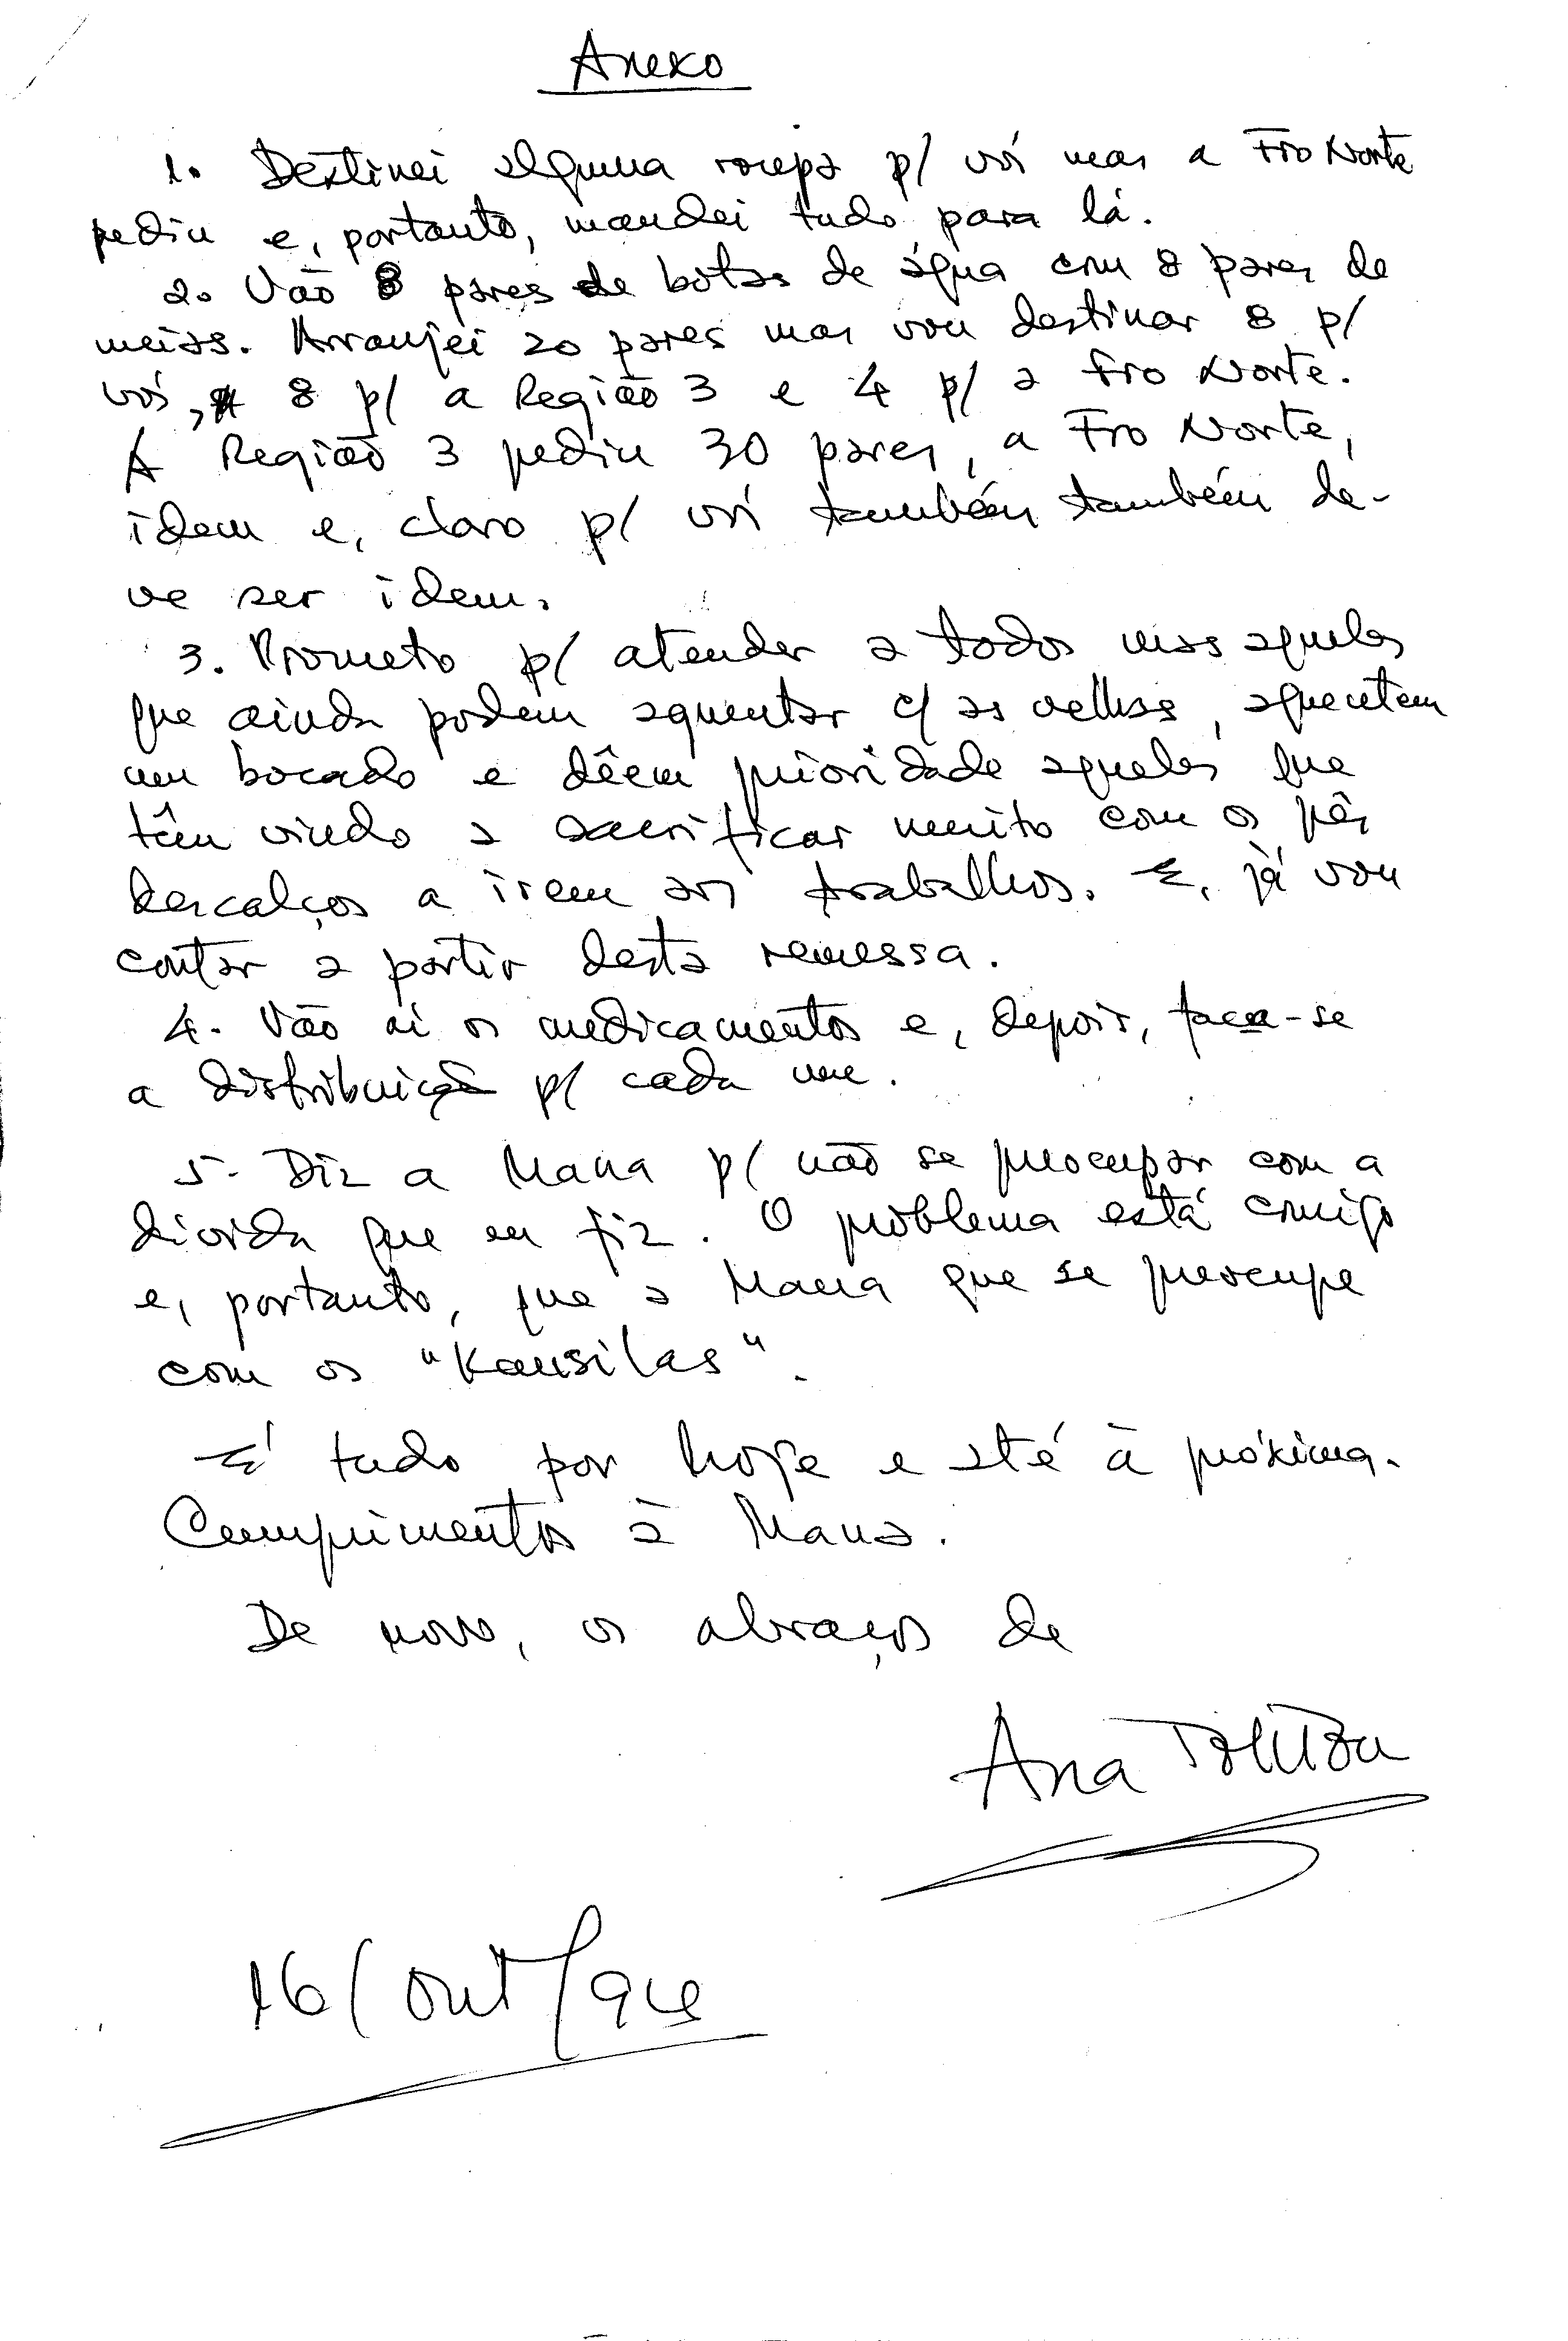 Anexo
1. Destinei alguma roupa p/ vós mas a Fro Norte
pediu e, portanto, mandei tudo para lá.
2. Vão 8 pares de botas de água com 8 pares de
meias. Arranjei 20 pares mas vou destinar 8 p/
vós, 8 p/ a Região 3 e 4 p/ a Fro Norte.
A Região 3 pediu 30 pares, a Fro Norte,
idem e, claro p/ vós também também de-
ve ser idem.
3. Prometo p/ atender a todos mas aqueles
que ainda podem aguentar c/ as velhas, aguentem
um bocado e dêem prioridade aqueles que
têm vindo a sacrificar muito com os pés
descalços a irem aos trabalhos. E, já vou
contar a partir desta remessa.
4. Vão aí os medicamentos e, depois, faça-se
a distribuição p/ cada um.
5. Diz a Mana p/ não se preocupar com a
dívida que eu fiz. O problema está comigo
e, portanto, que a Mana que se preocupe
com os "Kansilas".
É tudo por hoje e até à próxima.
Cumprimentos à Mana.
De novo, os abraços de
Ana
16/Out/94